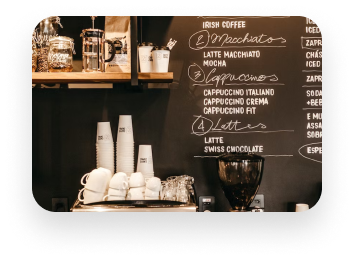 IRISH COFFEE
2 Macchiatos
LATTE MACCHIATO
MOCHA
3 Cappuccinos
CAPPUCCINO ITALIANO
CAPPUCCINO CREMA
CAPPUCCINO FIT
4 Lattes
LATTE
SWISS CHOCOLATE
ICED
ZAPR
ICED
ZAPR
SODA
+BEE
E MU
ASSA
SOBA
ESPE